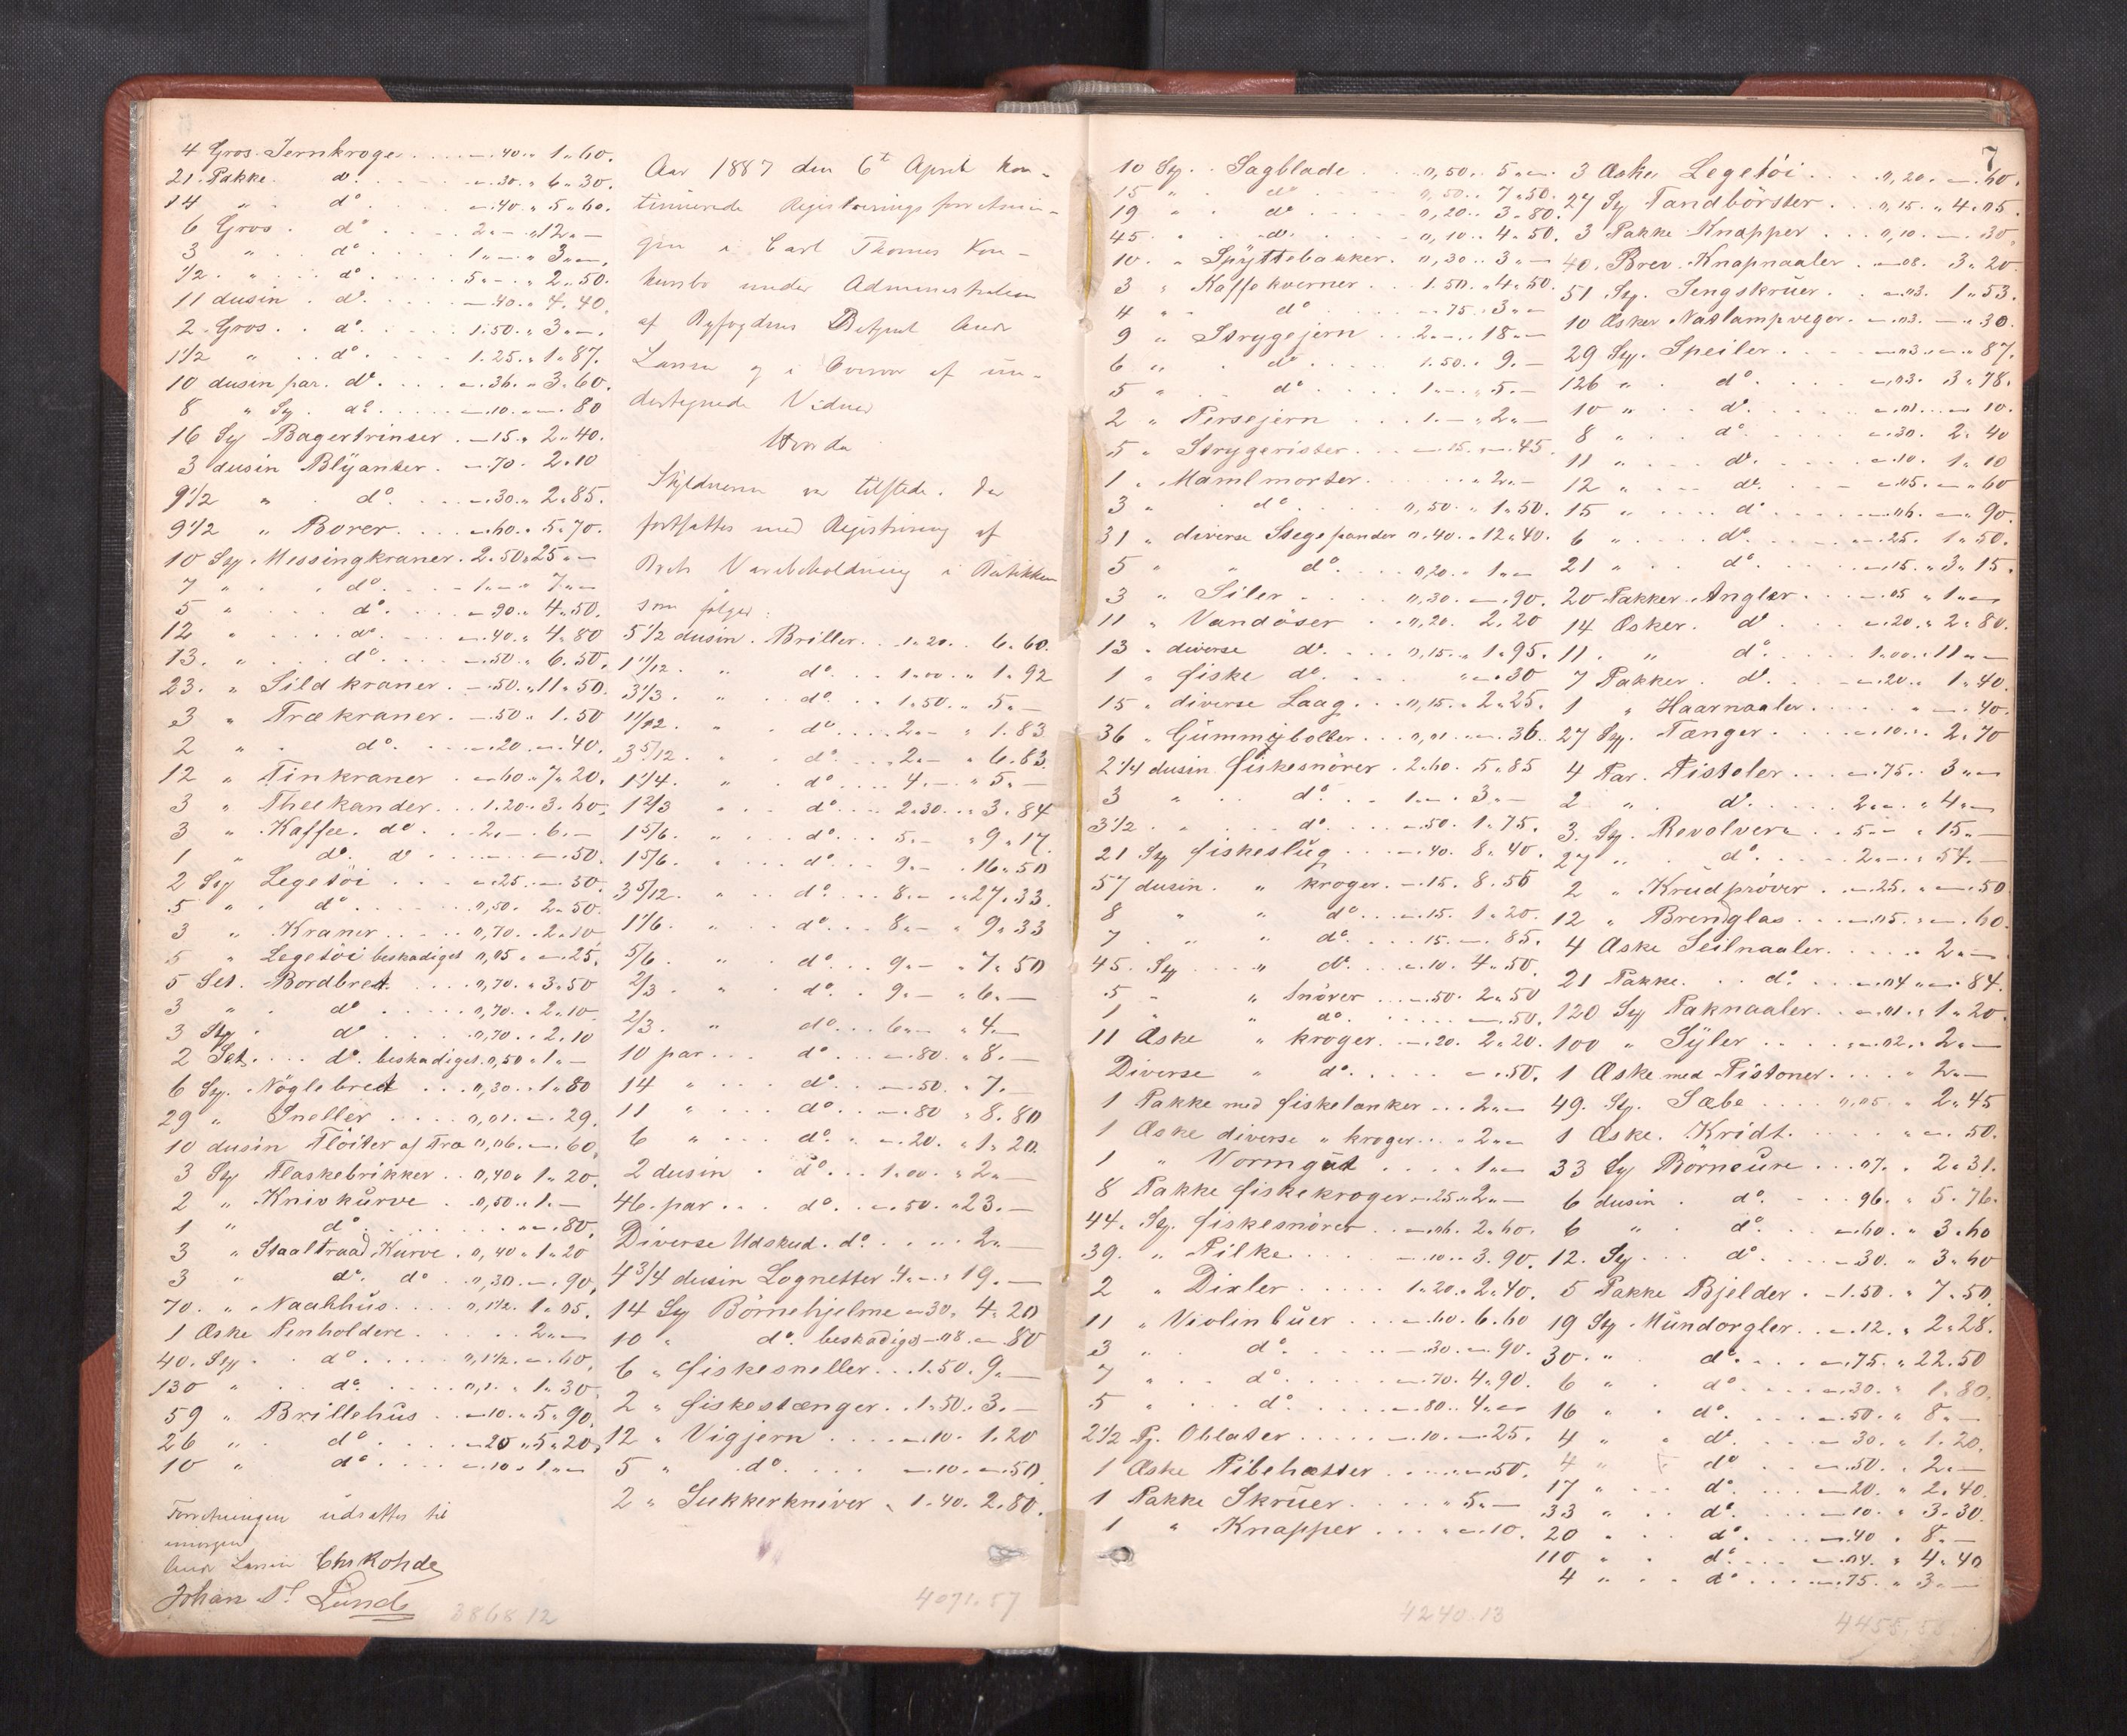 4 Gros Jernkroge . . . — " 40 " 1 " 60.
21 Pakke do . . . — " 30 " 6 " 30.
14 " do . . . — " 40 " 5 " 60.
6 Gros . do . . . 2 " — " 12 " —
3 " . do . . . 1 " — " 3 " —
1/2 " . do . . . 5 " — " 2 " 50.
11 dusin . do . . . — " 40 " 4 " 40.
2 Gros . do . . . 1.50 " 3 " —
1 1/2 " . do . . . 1.25 " 1 " 87.
10 dusin par. do . . . — " 36 " 3 " 60.
8 " Sy. do . . . — " 10 " — " 80
16 Sy Bagertrinser . — 15 " 2 " 40.
3 dusin Blyanter . — " 70 " 2.10
9 1/2 " do . . . — " 30 " 2 " 85.
9 1/2 " Borer . . . — " 60 " 5 " 70.
10 Sy. Messingkraner . 2 " 50 " 25 " —
7 " do . . . 1 " — " 7 " —
5 " do . . . — " 90 " 4 " 50.
12 " do . . . — " 40 " 4 " 80
13 " do . . . — " 50 " 6 " 50.
23 " Sildkraner . — " 50 " 11 " 50.
3 " Trækraner . — " 50 " 1.50
2 " do . . . — " 20 " — " 40.
12 " Tinkraner . — " 60 " 7 " 20.
3 " Theekander . . 1.20 " 3 " 60.
3 " Kaffee. do . . 2 " — " 6 " —
1 " do. do . . . — " 50.
2 Sy Legetöi . . . — " 25 " — " 50.
5 " do . . . 0,50 " 2 " 50.
3 " Kraner . . . 0,70 " 2 " 10
5 " Legetöi beskadiget 0,05 " — " 25.
5 Set. Bordbret . . . 0,70 " 3 " 50
3 " do . . . 0,70 " 2.10.
3 Sy do . . . 0,70 " 2.10
2 Set. . . do. beskadiget. 0,50 " 1 " —
6 Sy. Nöglebret . . 0,30 " 1 " 80
29 " Sneller . . . 0,01 " — " 29.
10 dusin Flöiter af Træ 0,06 " — " 60.
3 Sy Flaskebrikker . 0,40 " 1 " 20.
2 " Knivkurve . . 0,50 " 1 " —
1 " do . . . — " 80.
3 " Staaltraad Kurve . 0,40 " 1 " 20
3 " do. do . 0,30 " — " 90.
70 " Naalhus . . . 0,1 1/2 " 1 " 05.
1 Æske Penholdere . . . 2 " —
40 Sy . do . . . 0,1 1/2 " — " 60.
130 " do . . . 0,1 " 1 " 30.
59 " Brillehus . . — " 10 " 5 " 90.
26 " do . . . — " 20 " 5 " 20.
10 " do . . . — " 10 " 1 " —
Forretningen udsattes til
imorgen
Andr Larsen Chr Rohde
Johan S. Lunde
3868 12
Aar 1887 den 6t April kon-
tinuerede Registreringsforretnin-
gen i Carl Thomes Kon-
kursbo under Administration
af Byfogdens Betjent Andr
Larsen og i Overvær af un-
dertegnede Vidner
Hvorda
Skyldneren var tilstede. Der
fortsattes med Registrering af
Boets Varebeholdning i Butikken
som følger:
5 1/2 dusin . Briller . . 1 " 20 " 6 " 60.
1 11/12 " do . . . 1 " 00 " 1 " 92
3 1/3 " do . . . 1 " 50 " 5 " —
11/12 " do . . . 2 " — " 1.83
3 5/12 " do . . . 2 " — " 6.83
1 1/4 " do . . . 4 " — " 5 " —
1 2/3 " do . . . 2 " 30 " 3 " 84
1 5/6 " do . . . 5 " — " 9 " 17.
1 5/6 " do . . . 9 " — " 16 " 50
3 5/12 " do . . . 8 " — " 27 " 33.
1 1/6 " do . . . 8 " — " 9 " 33
5/6 " do . . . 9 " — " 7 " 50
2/3 " do . . . 9 " — " 6 " —
2/3 " do . . . 6 " — " 4 " —
10 par . . . do . . . — " 80 " 8 " —
14 " . . . do . . . — " 50 " 7 " —
11 " . . . do . . . — " 80 " 8 " 80
6 " . . . do . . . — " 20 " 1 " 20
2 dusin . do . . . 1 " 00 " 2 " —
46 par . . . do . . . — " 50 " 23 " —
Diverse Udskud . do . . . 2 " —
4 3/4 dusin Lognetter 4 " — " 19 " —
14 Sy Börnehjelme — " 30 " 4 " 20
10 " do. beskadiget — " 08 " — " 80
6 " fiskesneller . . 1 " 50 " 9 " —
2 " fiskestænger . . 1 " 50 " 3 " —
12 " Vigjern . . . — " 10 " 1.20
5 " do . . . — " 10 " — " 50
2 " Sukkerkniver " 1 " 40 " 2 " 80.
4071.57
10 Sy. Sagblade . . . 0,50 " 5 " —
15 " do . . . 0,50 " 7 " 50.
19 " do . . . 0,20 " 3 " 80.
45 " do . . . 0,10 " 4 " 50.
10 " Spyttebakker . 0,30 " 3 " —
3 " Kaffekverner . . 1.50 " 4 " 50.
4 " do . . . — " 75 " 3 " —
9 " Strygejern . . . 2 " — " 18 " —
6 " do . . . 1.50 " 9 " —
5 " do . . . 1 " — " 5 " —
2 " Persejern . . . 1 " — " 2 " —
5 " Strygerister . . . — " 15 " — " 45.
1 " Mamlmorter . . . " 2 " —
3 " do . . . 0,50 " 1 " 50.
31 " diverse Stegepander 0,40 " 12 " 40.
5 " " do . . . 0,20 " 1 " —
3 " Siler . . . 0,30 " — " 90.
11 " Vandöser . . 0,20 " 2.20
13 " diverse do . . . 0,15 " 1 " 95.
1 " fiske do . . . " — " 30
15 " diverse Laag . . . 0,15 " 2 " 25.
36 " Gummibolter . . . 0,01 " — " 36.
2 1/4 dusin fiskesnörer . 2 " 60 " 5 " 85
3 " do . . . 1 " — " 3 " —
3 1/2 " do . . . — " 50 " 1 " 75.
21 Sy fiskeslug . . . — " 40 " 8 " 40.
57 dusin . " kroger . — " 15 " 8.55
8 " " do . . . — " 15 " 1 " 20.
7 " " do . . . 15 " — " 85.
45 Sy . . " do . . . — " 10 " 4 " 50.
5 " " Snörer . . . — " 50 " 2 " 50
1 " " do . . . — " 50.
11 Æske " kroger . — " 20 " 2 " 20.
Diverse " do . . . — " 50.
1 Pakke med fiskelanker . . . 2 " —
1 Æske diverse " kroger . . . " 2 " —
1 " Vormgut . . . " 1 " —
8 Pakke fiskekroger — " 25 " 2 " —
44 Sy. fiskesnörer . . — " 06 " 2 " 60.
39 " Pilke . . . — " 10 " 3 " 90.
2 " Dixler . . . 1 " 20 " 2 " 40.
11 " Violinbuer . . . — " 60 " 6 " 60
3 " do . . . — " 30 " — " 90.
7 " do . . . — " 70 " 4 " 90.
5 " do . . . — " 80 " 4 " —
2 1/2 P. Oblater . . . — " 10 " — " 25.
1 Æske Pibehatter . . . " — " 50.
1 Pakke Skruer . . . " 5 " —
1 " Knapper . . . " — " 10.
4240.13
7
3 Æsker Legetöi . . . 0,20 " — " 60.
27 Sy Tandbörster . . . 0,15 " 4 " 05.
3 Pakke Knapper . . . 0,10 " — " 30.
40 Brev Knapnaaler . — " 08 " 3 " 20
51 Sy. Sengskruer . . — " 03 " 1 " 53.
10 Æsker Natlampveger . — " 03 " — " 30.
29 Sy. Speiler . . . — " 03 " — " 87.
126 " do . . . — " 03 " 3 " 78.
10 " do . . . — " 01 " — " 10.
8 " do . . . — " 30 " 2 " 40
11 " do . . . — " 10 " 1 " 10
12 " do . . . — " 05 " — " 60
15 " do . . . — " 06 " — " 90.
6 " do . . . — " 25 " 1 " 50.
21 " do . . . — " 15 " 3 " 15.
20 Pakker Angler . . . — " 05 " 1 " —
14 Æsker . do . . . — " 20 " 2 " 80.
11 " do . . . 1 " 00 " 11 " —
7 Pakker . do . . . — " 20 " 1 " 40.
1 " Haarnaaler . . . " — " 40.
27 Sy. Tænger . . . — " 10 " 2 " 70
4 Par. Pistoler . . . — " 75 " 3 " —
2 " do . . . 2 " — " 4 " —
3 Sy. Revolvere . . 5 " — " 15 " —
27 " do . . . 2 " — " 54 " —
2 " Krudprøver . . — " 25 " — " 50
12 " Brendglas . . . — " 05 " — " 60.
4 Æske Seilnaaler . . . " 2 " —
21 Pakke . . do . . . — " 04 " — " 84.
120 Sy Paknaaler . . — " 01 " 1 " 20.
100 " Syler . . . " — " 02 " 2 " —
1 Æske med Pistoner . . . " 2 " —
49 Sy. Sæbe . . . 0,05 " 2 " 45
1 Æske . Kridt . . . " — " 50.
33 Sy Börneure . . . 07 " 2 " 31.
6 dusin . do . . . 96 " 5 " 76.
6 " do . . . — " 60 " 3 " 60
12 Sy . . do . . . — " 30 " 3 " 60
5 Pakke Bjelder . — 1.50 " 7 " 50.
19 Sy Mundorgler . . — " 12 " 2 " 28.
30 " do . . . — " 75 " 22.50
6 " do . . . — " 30 " 1 " 80.
16 " do . . . — " 50 " 8 " —
4 " do . . . — " 30 " 1 " 20.
4 " do . . . — " 50 " 2 " —
17 " do . . . — " 20 " 2 " 40.
33 " do . . . — " 10 " 3 " 30.
20 " do . . . — " 40 " 8 " —
110 " do . . . — " 04 " 4 " 40
4 " do . . . — " 75 " 3 " —
4455.55